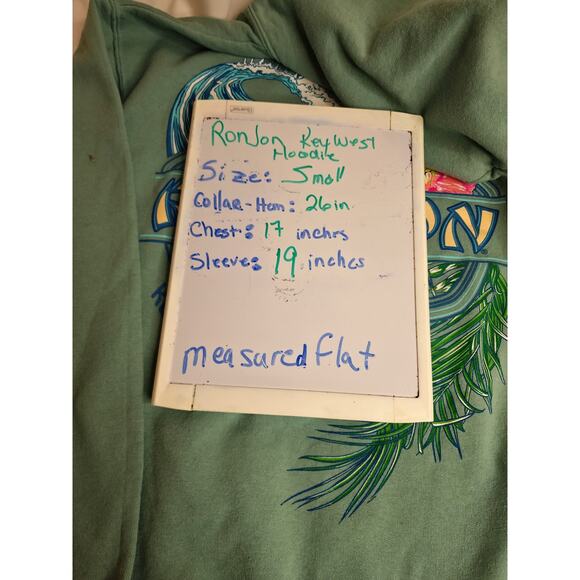 RonJon Key West
Hoodie
Size: Small
Collar-Hem: 26in
Chest: 17 inches
Sleeve: 19 inches
measured flat
ON